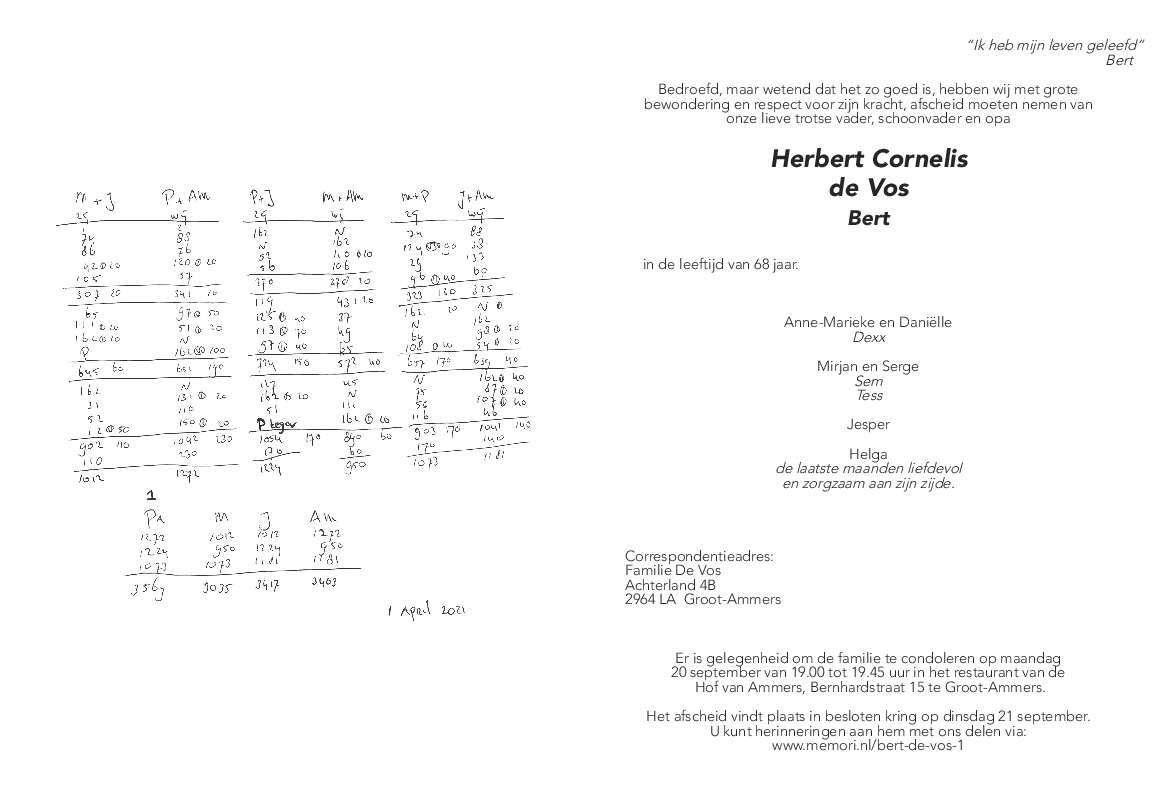 M + J P + AM
zg wg
74 88
86 76
42 ⊕ 20 120 ⊕ 20
105 57
303 20 341 20
65 97 ⊕ 50
111 ⊕ 20 51 ⊕ 20
162 ⊕ 20 N
P 162 ⊕ 100
645 60 651 190
162 N
31 131 ⊕ 20
52 110
12 ⊕ 50 150 ⊕ 20
902 110 1042 230
110 230
1012 1272
P + J M + AM
zg wj
162 N
N 162
52 110 ⊕ 20
56 106
270 378 20
119 43 ⊕ 20
125 ⊕ 40 37
113 ⊕ 70 49
97 ⊕ 40 65
724 150 572 40
127 45
162 ⊕ 20 N
51 111
P tegen 162 ⊕ 20
1054 170 890 60
170 60
1224 950
M + P J + AM
zg wg
74 88
124 33
29 133
96 ⊕ 40 60
323 130 325
162 N
N 162
64 98 ⊕ 20
108 ⊕ 20 54 ⊕ 20
657 170 659 40
N 162 ⊕ 40
75 87 ⊕ 20
56 107 ⊕ 40
116 46
903 170 1041 140
170 140
1073 1181
1
PA M J AM
1272 1012 1012 1272
1224 950 1224 950
1073 1073 1181 1181
3569 3035 3417 3403
1 April 2021
“Ik heb mijn leven geleefd”
Bert
Bedroefd, maar wetend dat het zo goed is, hebben wij met grote
bewondering en respect voor zijn kracht, afscheid moeten nemen van
onze lieve trotse vader, schoonvader en opa
Herbert Cornelis
de Vos
Bert
in de leeftijd van 68 jaar.
Anne-Marieke en Daniëlle
Dexx
Mirjan en Serge
Sem
Tess
Jesper
Helga
de laatste maanden liefdevol
en zorgzaam aan zijn zijde.
Correspondentieadres:
Familie De Vos
Achterland 4B
2964 LA Groot-Ammers
Er is gelegenheid om de familie te condoleren op maandag
20 september van 19.00 tot 19.45 uur in het restaurant van de
Hof van Ammers, Bernhardstraat 15 te Groot-Ammers.
Het afscheid vindt plaats in besloten kring op dinsdag 21 september.
U kunt herinneringen aan hem met ons delen via:
www.memori.nl/bert-de-vos-1